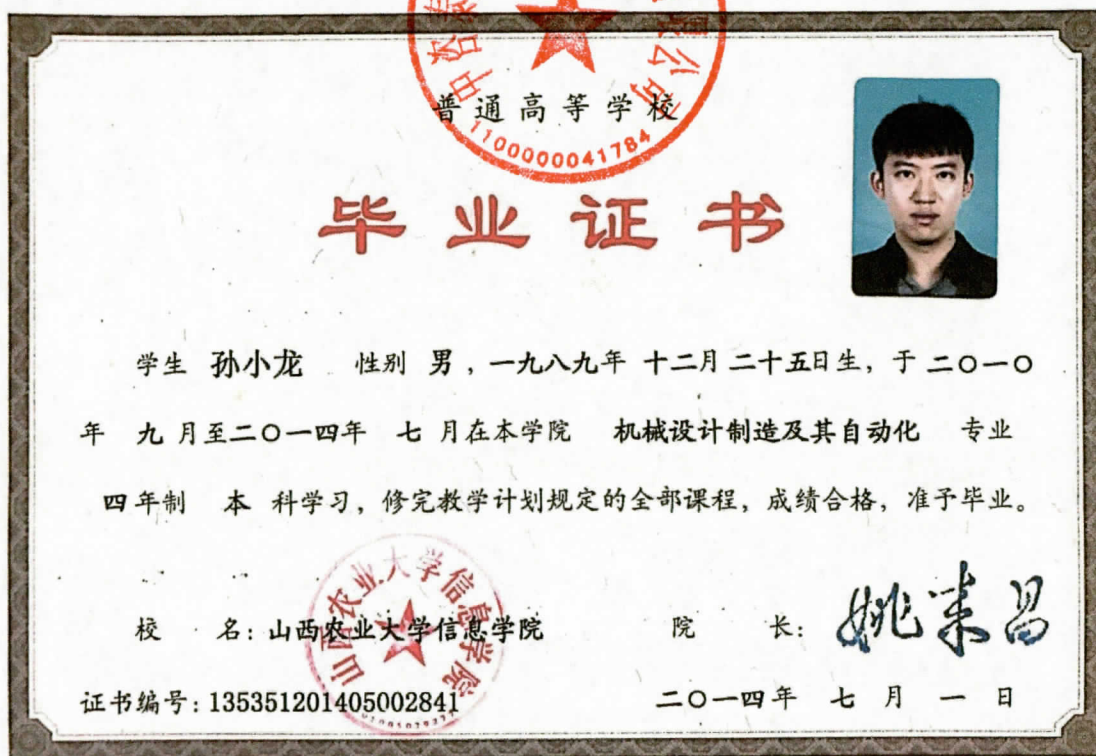 普通高等学校
1100000041784
毕业证书
学生 孙小龙 性别 男，一九八九年 十二月 二十五日生，于 二〇一〇
年 九 月至二〇一四年 七 月在本学院 机械设计制造及其自动化 专业
四年制 本 科学习，修完教学计划规定的全部课程，成绩合格，准予毕业。
山西农业大学信息学院
校 名：山西农业大学信息学院 院 长：姚来昌
证书编号：135351201405002841 二〇一四年 七 月 一 日